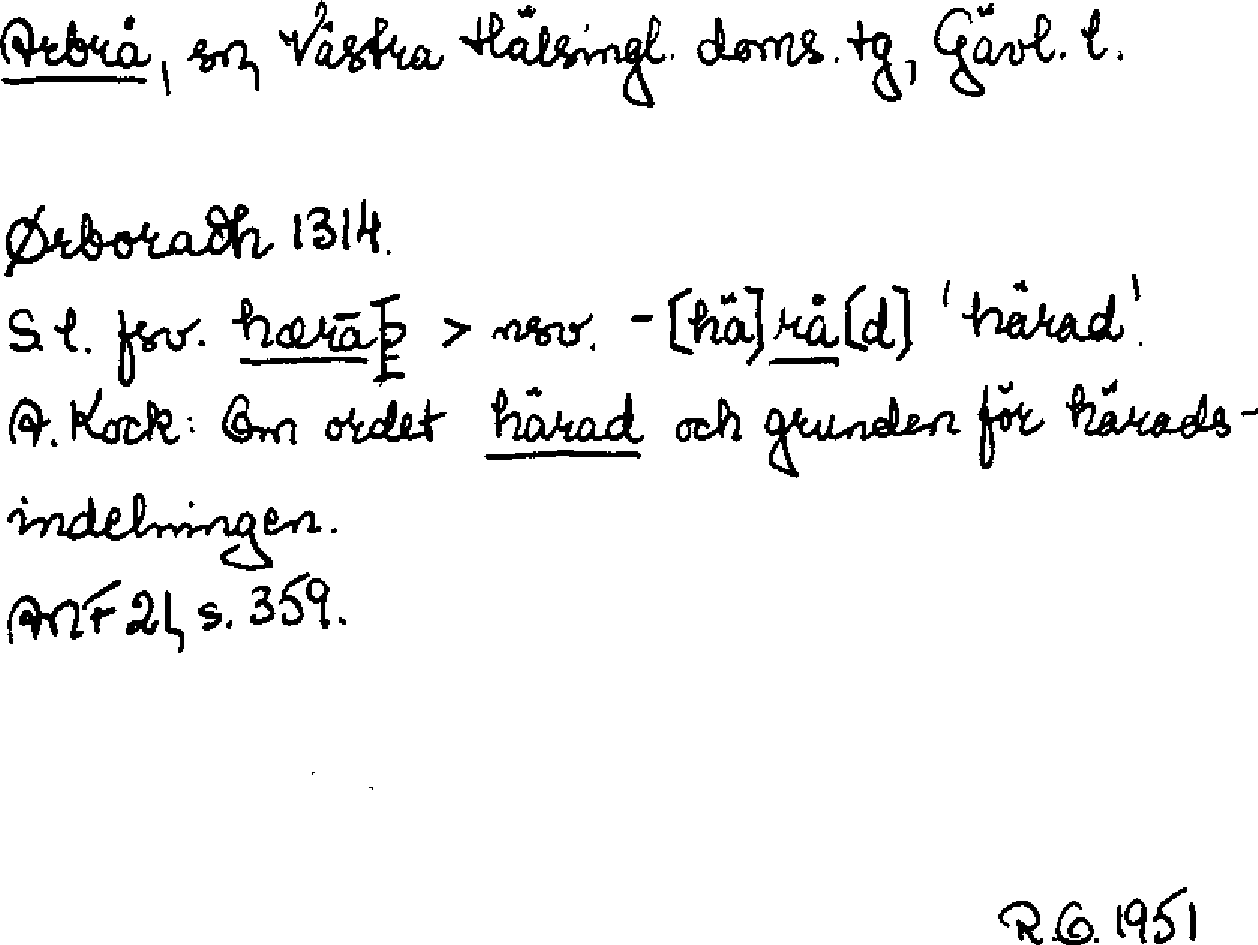 Arbrå, sn, Västra Hälsingl. doms. tg, Gävl. l.
Ørboradh 1314.
S.l. fsv. hærāþ > nsv. -[hä]rå[d] 'härad'.
A. Kock: Om ordet härad och grunden för härads-
indelningen.
ANF 21, s. 359.
R.O. 1951